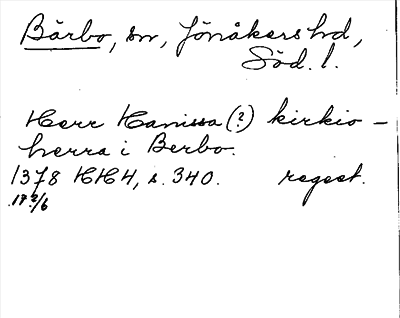 Bärbo, sn, Jönåkers hd,
Söd. l.
Herr Hanissa (?) kirkio-
herra i Berbo.
1378 HH4, s. 340. regest.
17?/6